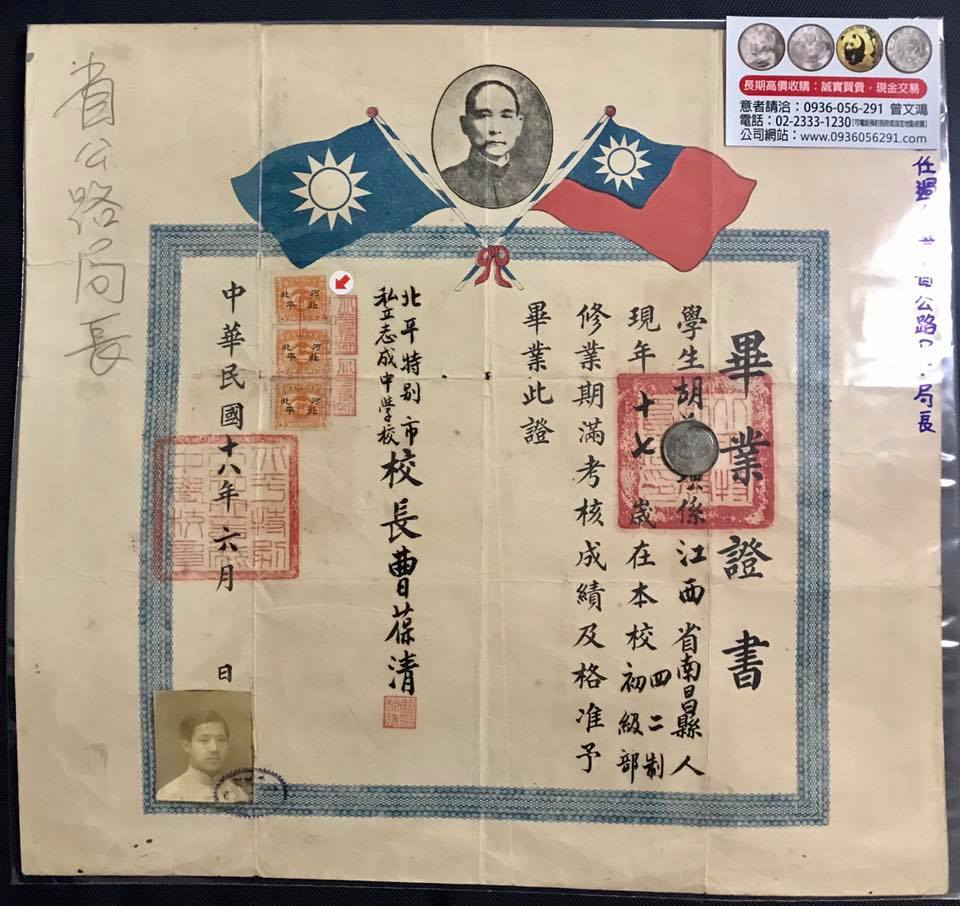 長期高價收購：誠實買賣，現金交易
意者請洽：0936-056-291 曾文鴻
電話：02-2333-1230
公司網站：www.0936056291.com
任過 公路 局長
畢業證書
學生胡 係江西省南昌縣人
現年十七歲在本校初級部四二制
修業期滿考核成績及格准予
畢業此證
北平特別市
私立志成中學校
校長曹葆清
河北
北平
河北
北平
河北
北平
中華民國十八年六月 日
省公路局長